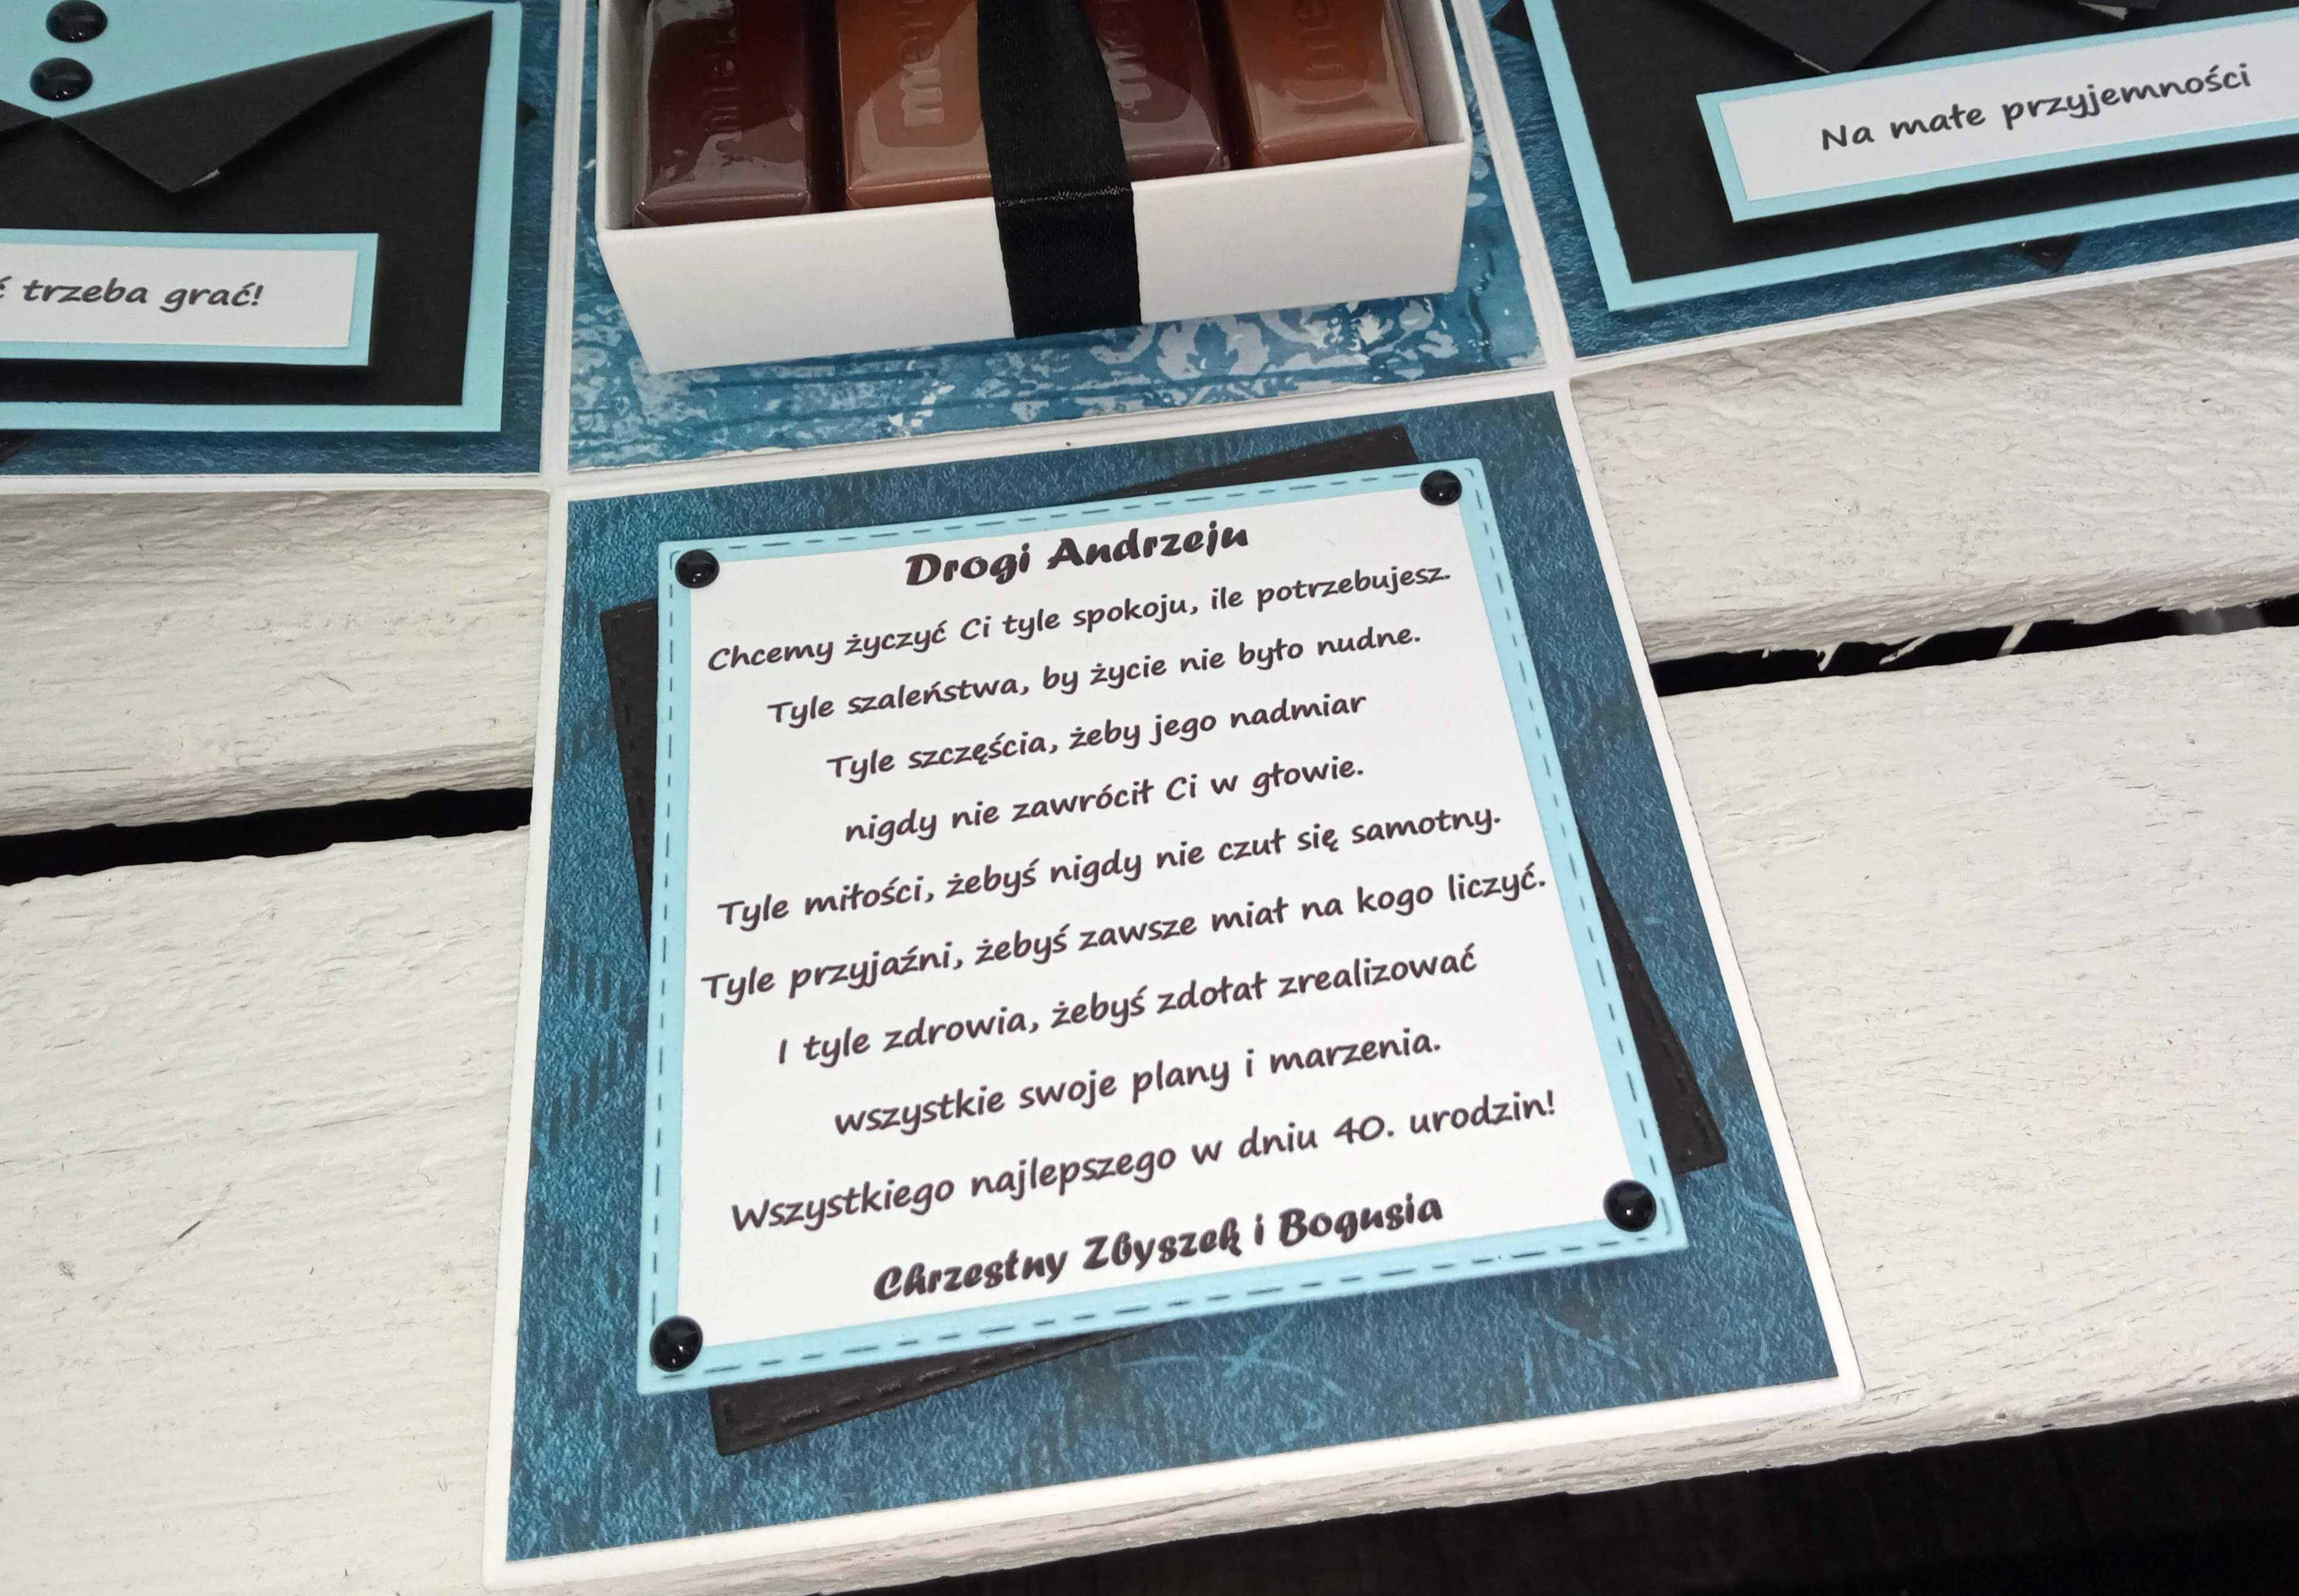 merci
merci
Na małe przyjemności
trzeba grać!
Drogi Andrzeju
Chcemy życzyć Ci tyle spokoju, ile potrzebujesz.
Tyle szaleństwa, by życie nie było nudne.
Tyle szczęścia, żeby jego nadmiar
nigdy nie zawrócił Ci w głowie.
Tyle miłości, żebyś nigdy nie czuł się samotny.
Tyle przyjaźni, żebyś zawsze miał na kogo liczyć.
I tyle zdrowia, żebyś zdołał zrealizować
wszystkie swoje plany i marzenia.
Wszystkiego najlepszego w dniu 40. urodzin!
Chrzestny Zbyszek i Bogusia